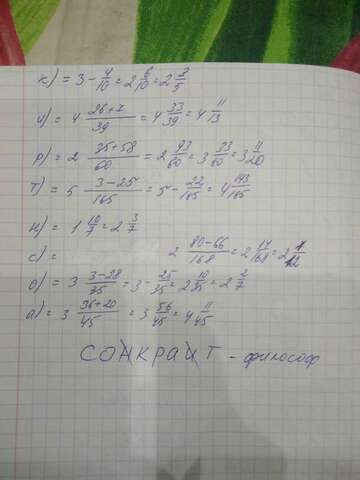 к) = 3 - 4/10 = 2 6/10 = 2 3/5
и) = 4 26+7/39 = 4 33/39 = 4 11/13
р) = 2 35+58/60 = 2 93/60 = 3 33/60 = 3 11/20
т) = 5 3-25/165 = 5 - 22/165 = 4 143/165
н) = 1 10/7 = 2 3/7
с) = 2 80-66/168 = 2 14/168 = 2 1/12
о) = 3 3-28/35 = 3 - 25/35 = 2 10/35 = 2 2/7
а) = 3 36+20/45 = 3 56/45 = 4 11/45
СОНКРАИТ - философ